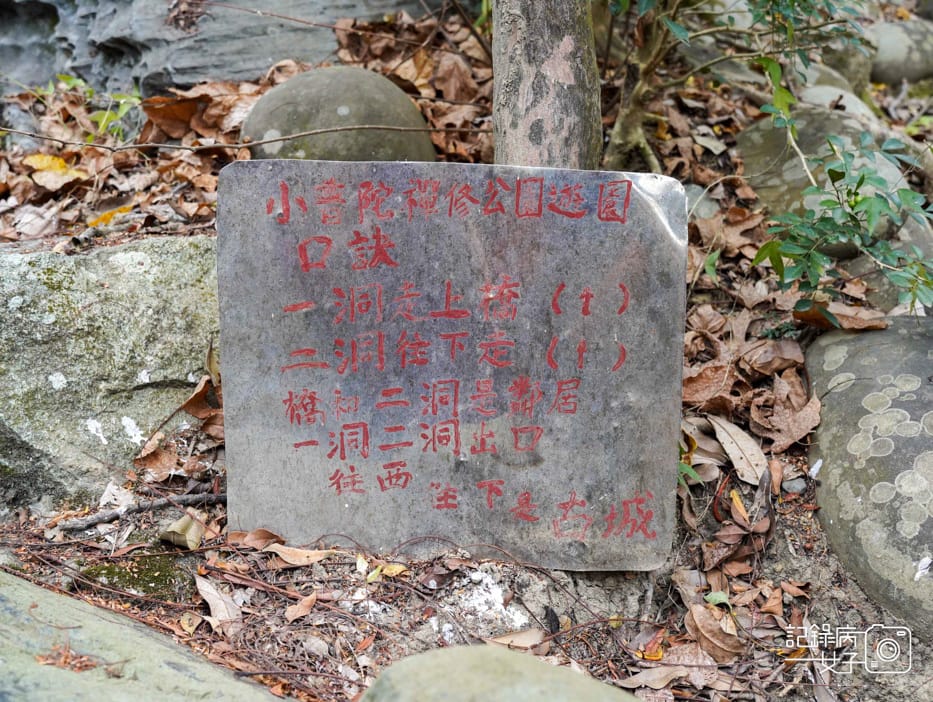 小普陀禪修公園遊園
口訣
一洞走上橋(↑)
二洞往下走(↑)
橋和二洞是鄰居
一洞二洞出口
往西 往下是古城
記錄病
一女子